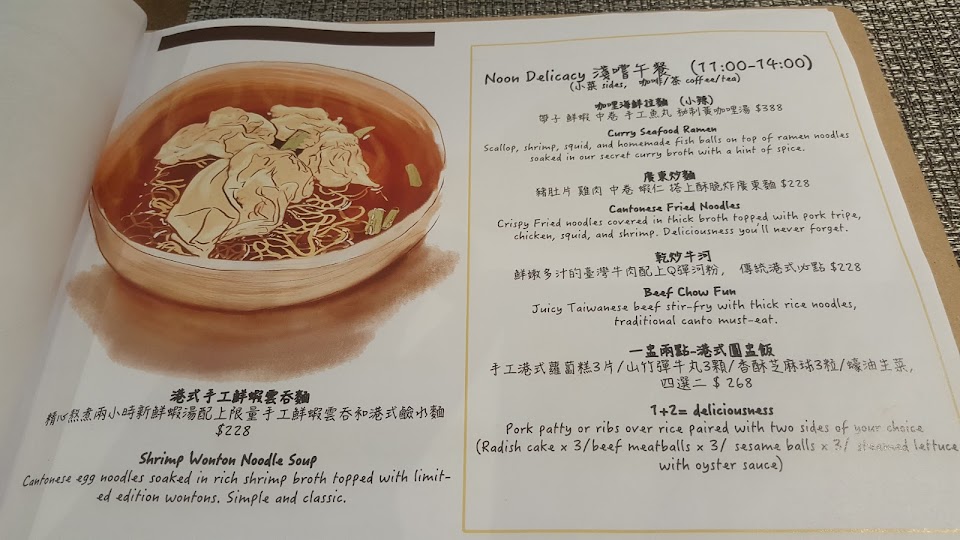 港式手工鮮蝦雲吞麵
精心熬煮兩小時新鮮蝦湯配上限量手工鮮蝦雲吞和港式鹼水麵
$228
Shrimp Wonton Noodle Soup
Cantonese egg noodles soaked in rich shrimp broth topped with limit-
ed edition wontons. Simple and classic.
Noon Delicacy 淺嚐午餐 (11:00-14:00)
(小菜 sides, 咖啡/茶 coffee/tea)
咖哩海鮮拉麵 (小辣)
帶子 鮮蝦 中卷 手工魚丸 秘制黃咖哩湯 $388
Curry Seafood Ramen
Scallop, shrimp, squid, and homemade fish balls on top of ramen noodles
soaked in our secret curry broth with a hint of spice.
廣東炒麵
豬肚片 雞肉 中卷 蝦仁 搭上酥脆炸廣東麵 $228
Cantonese Fried Noodles
Crispy Fried noodles covered in thick broth topped with pork tripe,
chicken, squid, and shrimp. Deliciousness you'll never forget.
乾炒牛河
鮮嫩多汁的臺灣牛肉配上Q彈河粉, 傳統港式必點 $228
Beef Chow Fun
Juicy Taiwanese beef stir-fry with thick rice noodles,
traditional canto must-eat.
一盅兩點-港式圓盅飯
手工港式蘿蔔糕3片/山竹彈牛丸3顆/香酥芝麻球3粒/蠔油生菜,
四選二 $ 268
1+2= deliciousness
Pork patty or ribs over rice paired with two sides of your choice
(Radish cake x 3/beef meatballs x 3/ sesame balls x 3/ steamed lettuce
with oyster sauce)